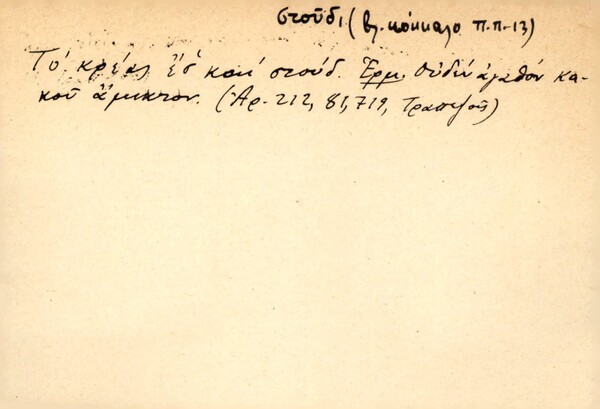 στούδι (βλ. κόκκαλο Π.Π-13)
Τό κρέας ἔσ̌ καί στούδ. Ἑρμ. Οὐδέν ἀγαθόν κα-
κοῦ ἄμικτον. (Ἀρ. 212, 81,719, Τραπεζοῦς)